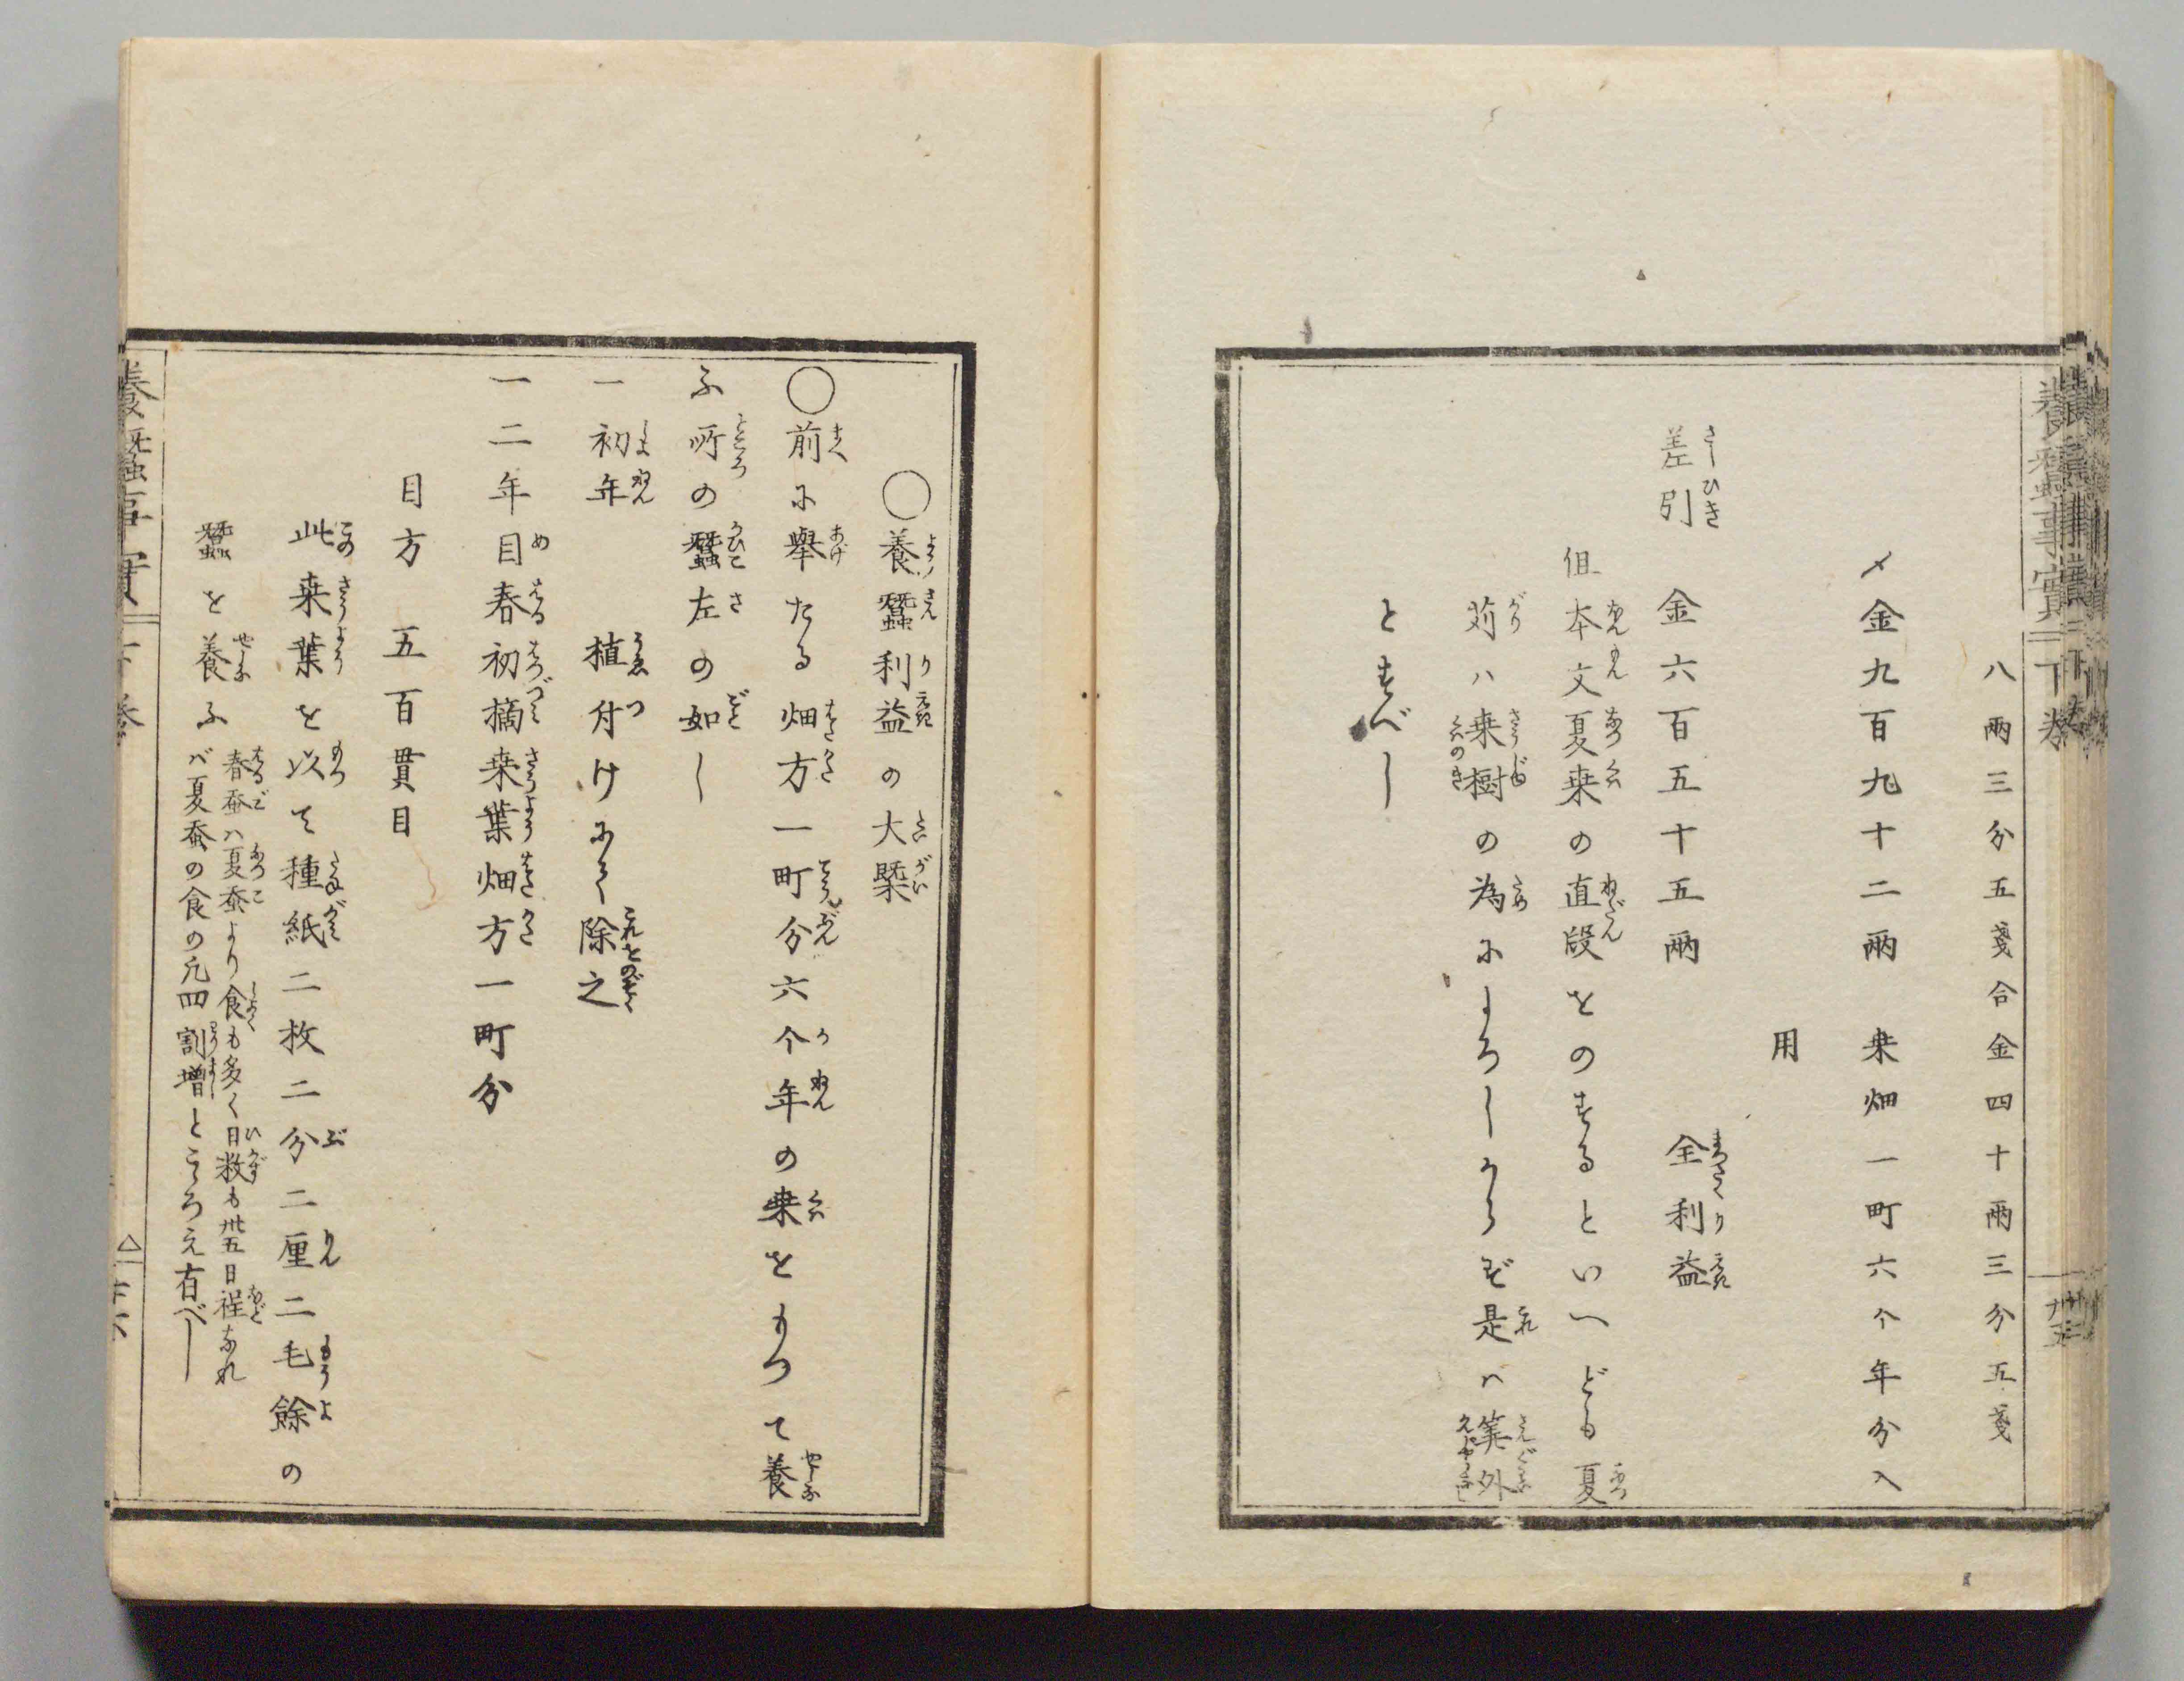 養蠶事實 下巻 廿五
八兩三分五戔合金四十兩三分五戔
〆金九百九十二兩 桒畑一町六个年分入
用
差引 金六百五十五兩 全利益
但本文夏桒の直段をのするといへども夏
苅ハ桒樹の為によろしからず是ハ筭外
とすべし
○養蠶利益の大槩
○前に擧たる畑方一町分六个年の桒をもつて養
ふ所の蠶左の如し
一初年 植付けにて除之
一二年目春初摘桒葉畑方一町分
目方 五百貫目
此桒葉を以て種紙二枚二分二厘二毛餘の
蠶を養ふ
春蚕ハ夏蚕より食も多く日数も丗五日程なれ
バ夏蚕の食の凢四割増とこゝろえ有べし
養蠶事實 下巻